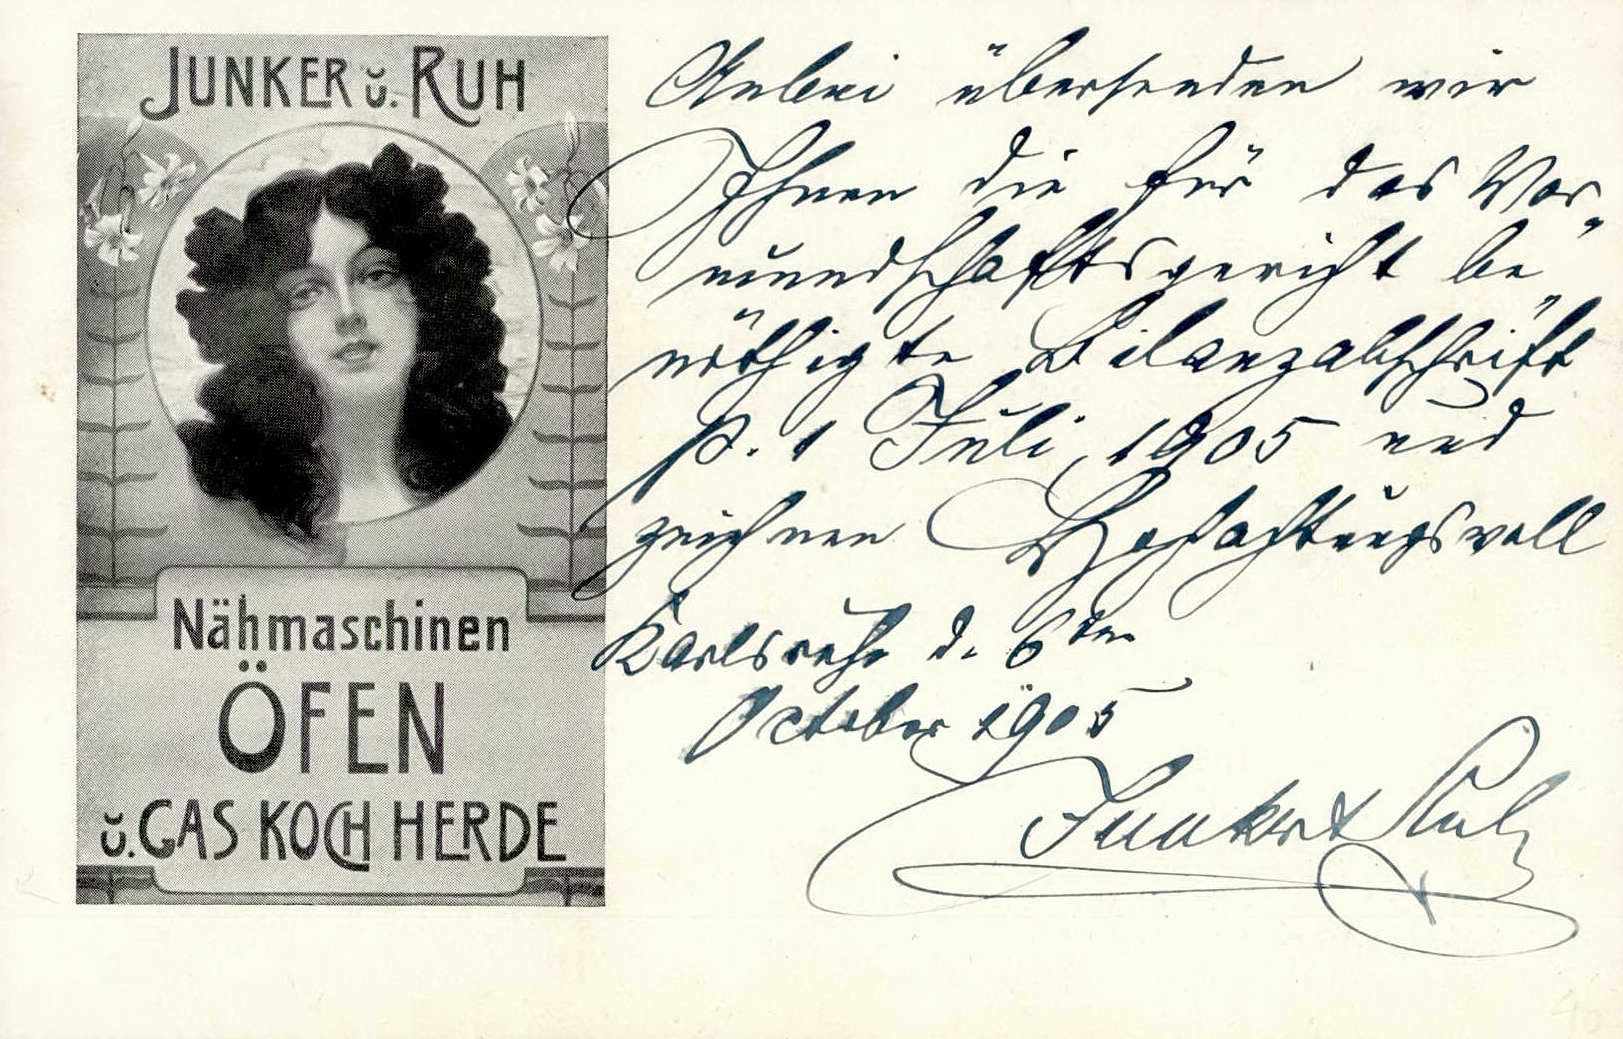 JUNKER u. RUH
Nähmaschinen
ÖFEN
u. GAS KOCH HERDE
Anbei übersenden wir
Ihnen die für das Vor-
mundschaftsgericht be-
nöthigte Bilanzabschrift
p. 1 Juli 1905 und
zeichnen Hochachtungsvoll
Karlsruhe d. 6ten
October 1905
Junker & Ruh